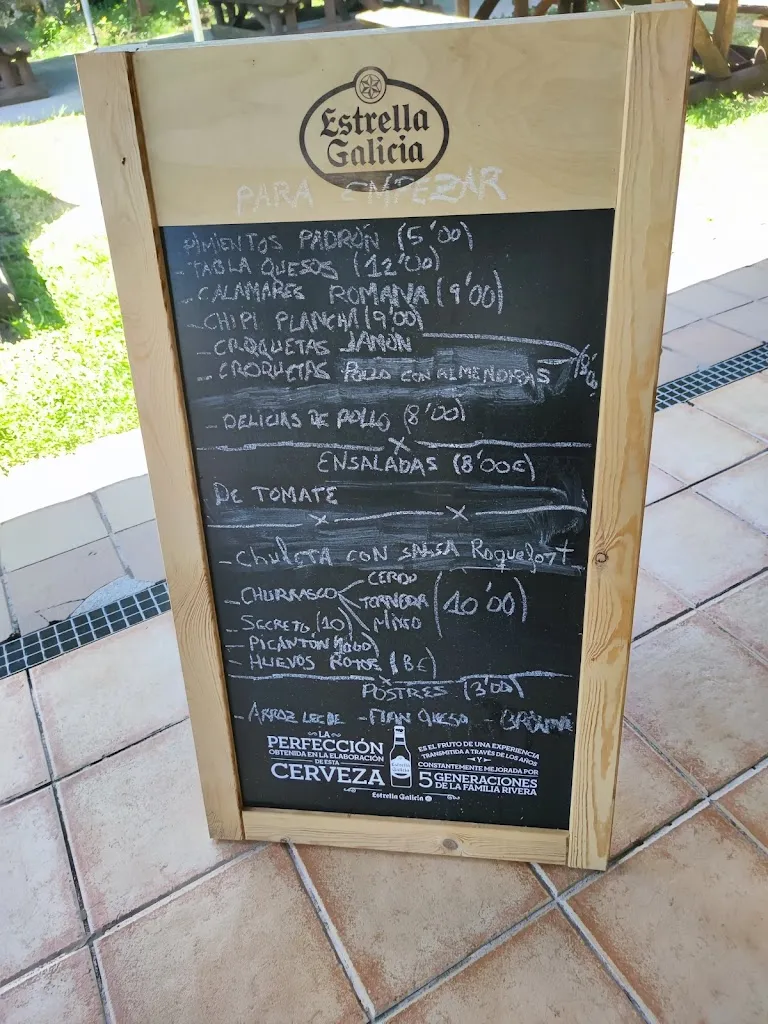 Estrella
Galicia
PARA EMPEZAR
PIMIENTOS PADRÓN (5'00)
- TABLA QUESOS (12'00)
- CALAMARES ROMANA (9'00)
- CHIPI PLANCHA (9'00)
- CROQUETAS JAMÓN
- CROQUETAS POLLO CON ALMENDRAS
- DELICIAS DE POLLO (8'00)
x
ENSALADAS (8'00€)
DE TOMATE
x x
- Chuleta con SALSA Roquefort
- CHURRASCO CERDO
TERNERA (10'00)
MIXTO
- SECRETO (10)
- PICANTÓN
- HUEVOS ROTOS (8€)
x
POSTRES (3'00)
- ARROZ LECHE - FLAN QUESO - BROWNIE
LA
PERFECCIÓN
OBTENIDA EN LA ELABORACIÓN
DE ESTA
CERVEZA
ES EL FRUTO DE UNA EXPERIENCIA
TRANSMITIDA A TRAVÉS DE LOS AÑOS
Y
CONSTANTEMENTE MEJORADA POR
5 GENERACIONES
DE LA FAMILIA RIVERA
Estrella Galicia